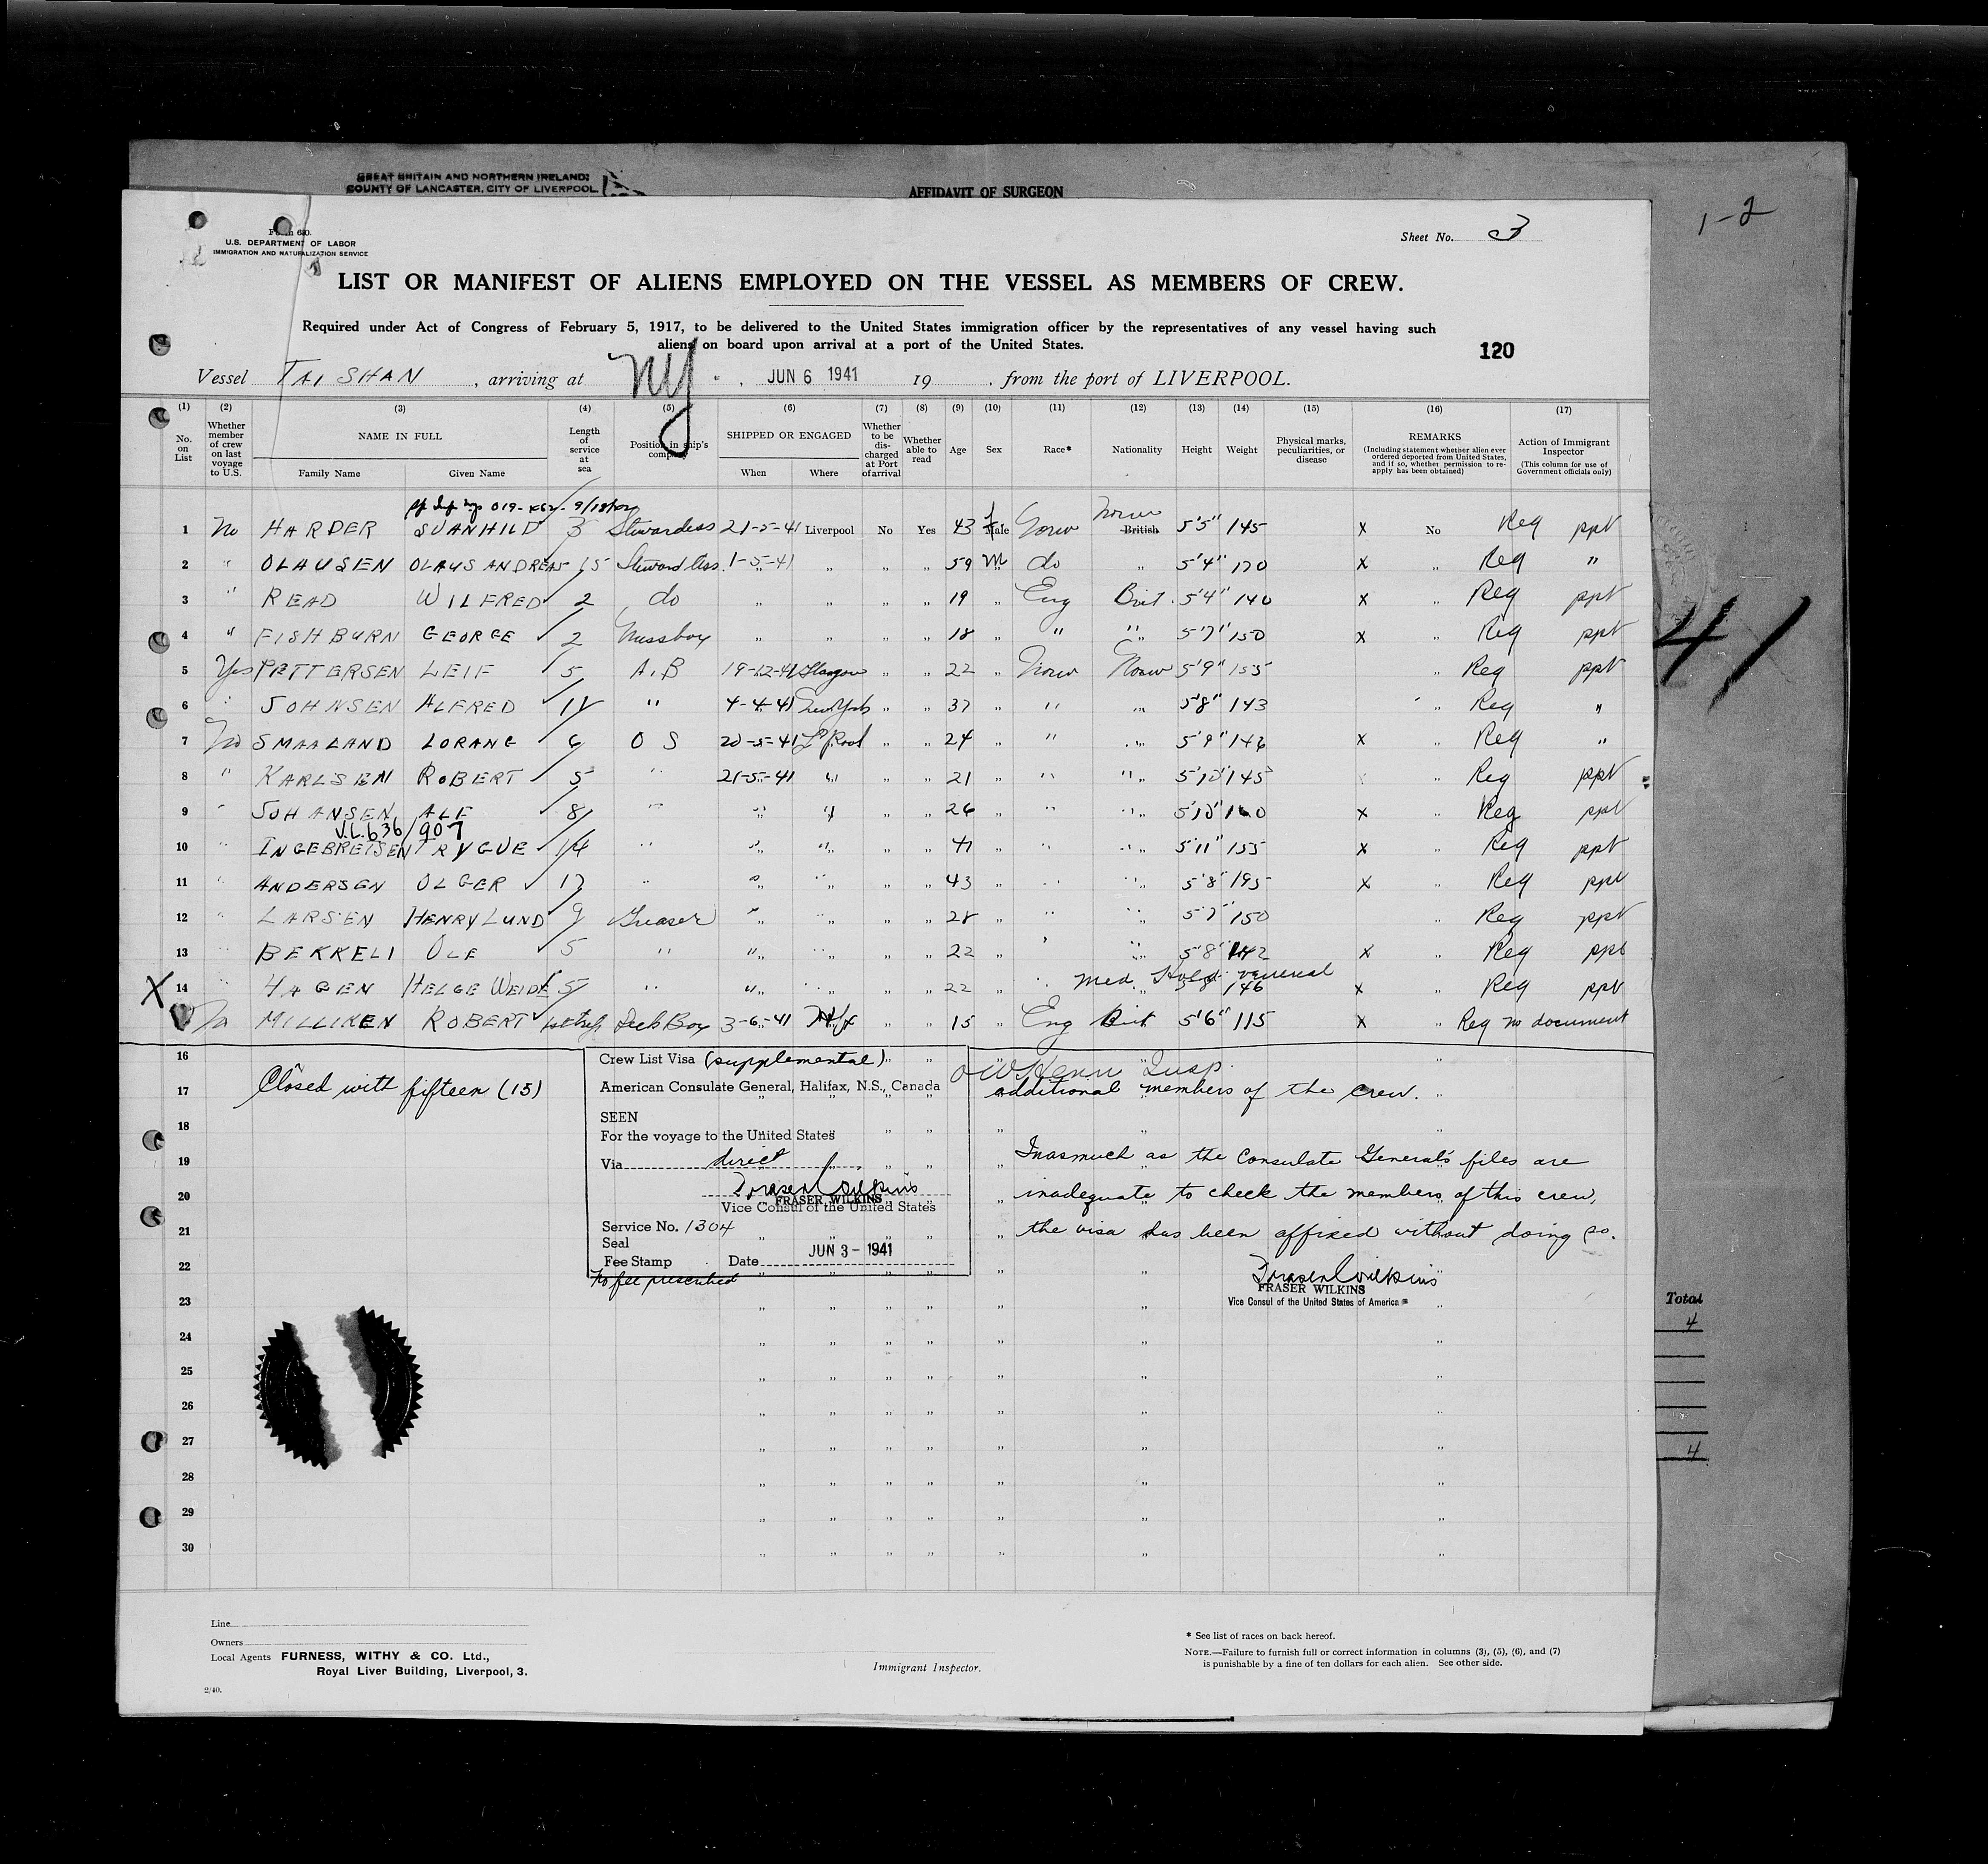 GREAT BRITAIN AND NORTHERN IRELAND:
COUNTY OF LANCASTER, CITY OF LIVERPOOL
AFFIDAVIT OF SURGEON
1-2
Form 680.
U.S. DEPARTMENT OF LABOR
IMMIGRATION AND NATURALIZATION SERVICE
Sheet No. 3
LIST OR MANIFEST OF ALIENS EMPLOYED ON THE VESSEL AS MEMBERS OF CREW.
Required under Act of Congress of February 5, 1917, to be delivered to the United States immigration officer by the representatives of any vessel having such
aliens on board upon arrival at a port of the United States.
120
Vessel TAI SHAN , arriving at NY , JUN 6 1941 19 , from the port of LIVERPOOL.
(1) (2) (3) (4) (5) (6) (7) (8) (9) (10) (11) (12) (13) (14) (15) (16) (17)
No. on List
Whether member of crew on last voyage to U.S.
NAME IN FULL
Family Name Given Name
Length of service at sea
Position in ship's company
SHIPPED OR ENGAGED
When Where
Whether to be discharged at Port of arrival
Whether able to read
Age
Sex
Race*
Nationality
Height
Weight
Physical marks, peculiarities, or disease
REMARKS
(Including statement whether alien ever ordered deported from United States, and if so, whether permission to re-apply has been obtained)
Action of Immigrant Inspector
(This column for use of Government officials only)
1 No HARDER SUANHILD 3 Stewardess 21-5-41 Liverpool No Yes 43 Norw Norw British 5'5" 145 x No Reg ppt
2 " OLAUSEN OLAUS ANDREAS 15 1-5-41 " " " 59 M do " 5'4" 170 x " Reg "
3 " READ WILFRED 2 do " " " " 19 " Eng Brit. 5'4" 140 x " Reg ppt
4 " FISHBURN GEORGE 2 Messboy " " " " 18 " " " 5'7" 150 x " Reg ppt
5 Yes PETTERSEN LEIF 5 A.B 19-12-41 Glasgow " " 22 " Norw Norw 5'9" 155 " Reg ppt
6 " JOHNSEN ALFRED " 4-4-41 New York " " 37 " " " 5'8" 143 " Reg "
7 No SMAALAND LORANG 6 O S 20-5-41 L'Pool " " 24 " " " 5'9" 146 x " Reg "
8 " KARLSEN ROBERT 5 " 21-5-41 " " " 21 " " " 5'10" 145 " Reg ppt
9 " JOHANSEN ALF 8 " " " " " 26 " " " 5'10" 160 x " Reg ppt
V.L.636/907
10 " INGEBRETSEN TRYGUE 14 " " " " " 41 " " " 5'11" 155 x " Reg ppt
11 " ANDERSEN OLGER 17 " " " " " 43 " " " 5'8" 195 x " Reg ppt
12 " LARSEN HENRY LUND 9 Greaser " " " " 28 " " " 5'7" 150 " Reg ppt
13 " BEKKELI OLE 5 " " " " " 22 " " " 5'8" 142 x " Reg ppt
Med. Hold venereal
X 14 HAGEN HELGE WEIDE 5 " " " " " 22 " " 146 x " Reg ppt
No MILLIKEN ROBERT 1st trip Deck Boy 3-6-41 Hfx " " 15 " Eng Brit 5'6" 115 x " Reg no document
41
16
17 Closed with fifteen (15)
additional members of the crew.
Crew List Visa (supplemental)
American Consulate General, Halifax, N.S., Canada
SEEN
For the voyage to the United States
Via direct
Fraser Wilkins
FRASER WILKINS
Vice Consul of the United States
Service No. 1304
Seal
Fee Stamp Date JUN 3 - 1941
No fee prescribed
Inasmuch as the Consulate General's files are
inadequate to check the members of this crew,
the visa has been affixed without doing so.
Fraser Wilkins
FRASER WILKINS
Vice Consul of the United States of America
18
19
20
21
22
23
24
25
26
27
28
29
30
Total
4
4
Line
Owners
Local Agents FURNESS, WITHY & CO. Ltd.,
Royal Liver Building, Liverpool, 3.
2/40.
Immigrant Inspector.
* See list of races on back hereof.
NOTE.—Failure to furnish full or correct information in columns (3), (5), (6), and (7)
is punishable by a fine of ten dollars for each alien. See other side.